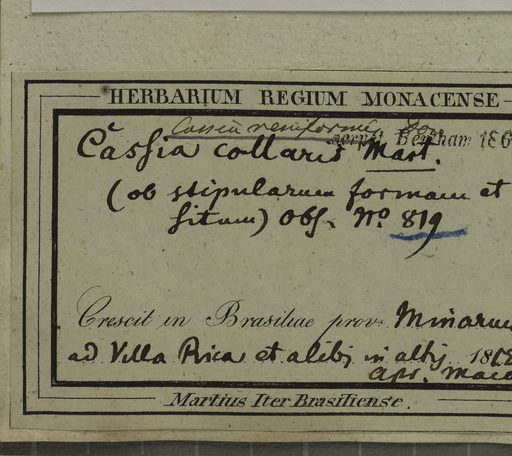 HERBARIUM REGIUM MONACENSE
Cassia reniformis Don
script. Bentham 186
Cassia collaris Mart.
(ob stipularum formam et
situm) Obs. No. 819
Crescit in Brasiliae prov. Minarum
ad Villa Rica et alibi in altis 1818
Apr. Maio
Martius Iter Brasiliense.